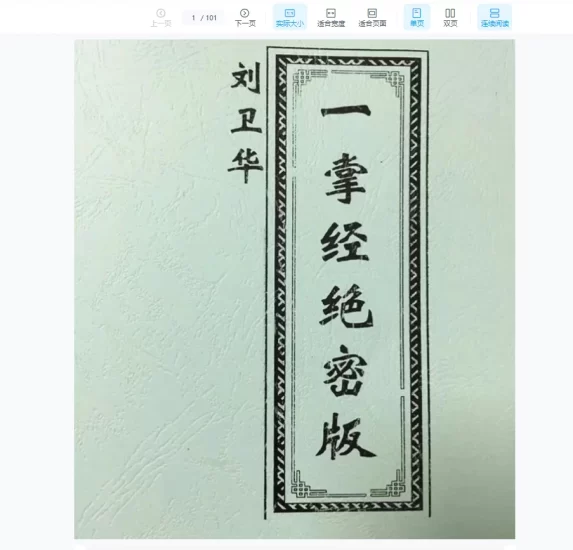 上一页
1 / 101
下一页
实际大小
适合宽度
适合页面
单页
双页
连续阅读
一掌经绝密版
刘卫华